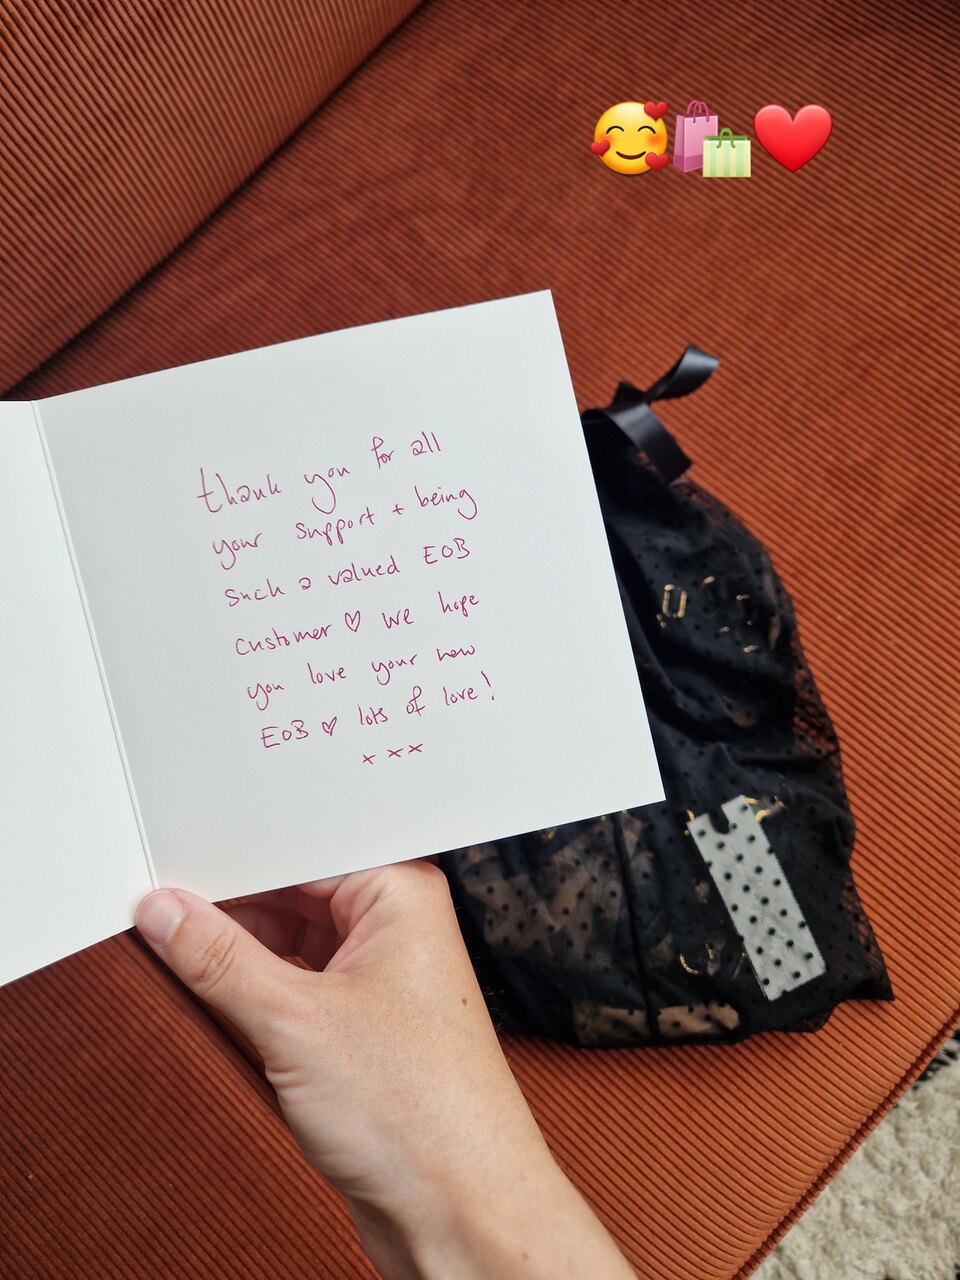 🥰🛍️❤️
thank you for all
your support + being
such a valued EOB
customer ♡ we hope
you love your new
EOB ♡ lots of love!
x x x